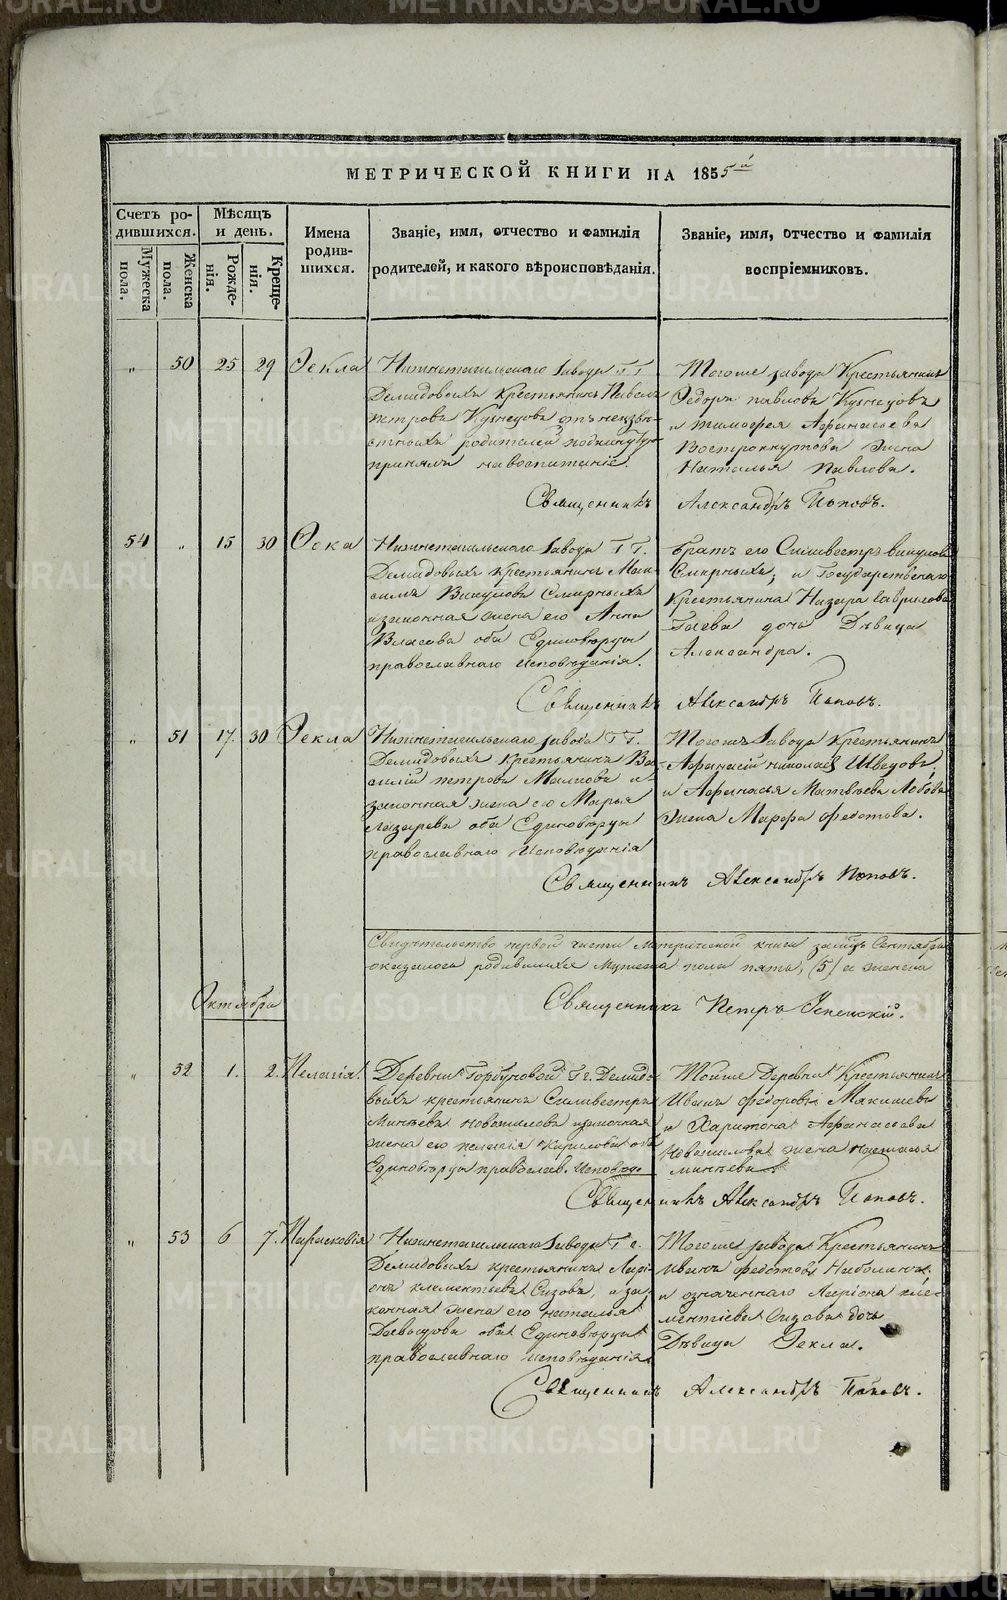 МЕТРИЧЕСКОЙ КНИГИ НА 1855й
Счетъ ро-
дившихся.
Мужеска
пола.
Женска
пола.
Мѣсяцъ
и день.
Рожде-
нія.
Креще-
нія.
Имена
родив-
шихся.
Званіе, имя, отчество и фамилія
родителей, и какого вѣроисповѣданія.
Званіе, имя, отчество и фамилія
воспріемниковъ.
" 50 25 29 Ѳекла
Нижнетагильскаго Завода ГГ.
Демидовыхъ крестьянинъ Павелъ
петровъ Кузнецовъ отъ неизвѣ-
стныхъ родителей подкинутую
принялъ навоспитаніе.
Тогоже завода Крестьянинъ
Ѳедоръ павловъ Кузнецовъ
и тимофея Афанасьева
Вострокнутова жена
Наталья Павлова.
Священникъ Александръ Поповъ.
54 " 15 30 Ѳока
Нижнетагильскаго Завода ГГ.
Демидовыхъ крестьянинъ Мак-
симъ Викуловъ Смирныхъ
изаконная жена его Анна
Власова оба Единовѣрцы
православнаго исповѣданія.
Братъ его Силивестръ викуловъ
Смирныхъ, и Государственнаго
Крестьянина Назара Гаврилова
Гаева дочь Дѣвица
Александра.
Священникъ Александръ Поповъ.
" 51 17. 30 Ѳекла
Нижнетагильскаго завода ГГ.
Демидовыхъ Крестьянинъ Ва-
силій петровъ Малковъ и
законная жена его Марья
лазарева оба Единовѣрцы
православнаго Исповѣданія
Тогожъ Завода Крестьянинъ
Афанасій николаевъ Шведовъ,
и Афанасья Матвѣева Лобова
жена Марфа федотова.
Священникъ Александръ Поповъ.
Свидѣтельство первой части метрической книги замѣць Сентябрь
оказалось родившихся Мужеска пола пять, (5) а женска
Священникъ Петръ Успенскій.
Октябрь
" 52 1. 2. Пелагія.
Деревни Горбуновой Гг. Демидо-
выхъ крестьянинъ Силивестръ
Минѣевъ новошиловъ изаконная
жена его пелагія Кирилова оба
Единовѣрцы православ. Исповѣд.
Тойже Деревни Крестьянинъ
Иванъ федоровъ Мякишевъ
и Харитона Афанасьева
Новошилова жена настасья
минѣева.
Священникъ Александръ Поповъ.
" 53 6 7. Парасковія
Нижнетагильскаго Завода Гг.
Демидовыхъ крестьянинъ Лари-
онъ климентьевъ Сизовъ, иза-
конная жена его наталья
Давыдова оба Единовѣрцы
православнаго исповѣданія
Тогоже завода Крестьянинъ
Иванъ федотовъ Наболинъ,
и означеннаго Ларіона кле-
ментіева Сизова дочь
Дѣвица Ѳекла.
Священникъ Александръ Поповъ.
METRIKI.GASO-URAL.RU